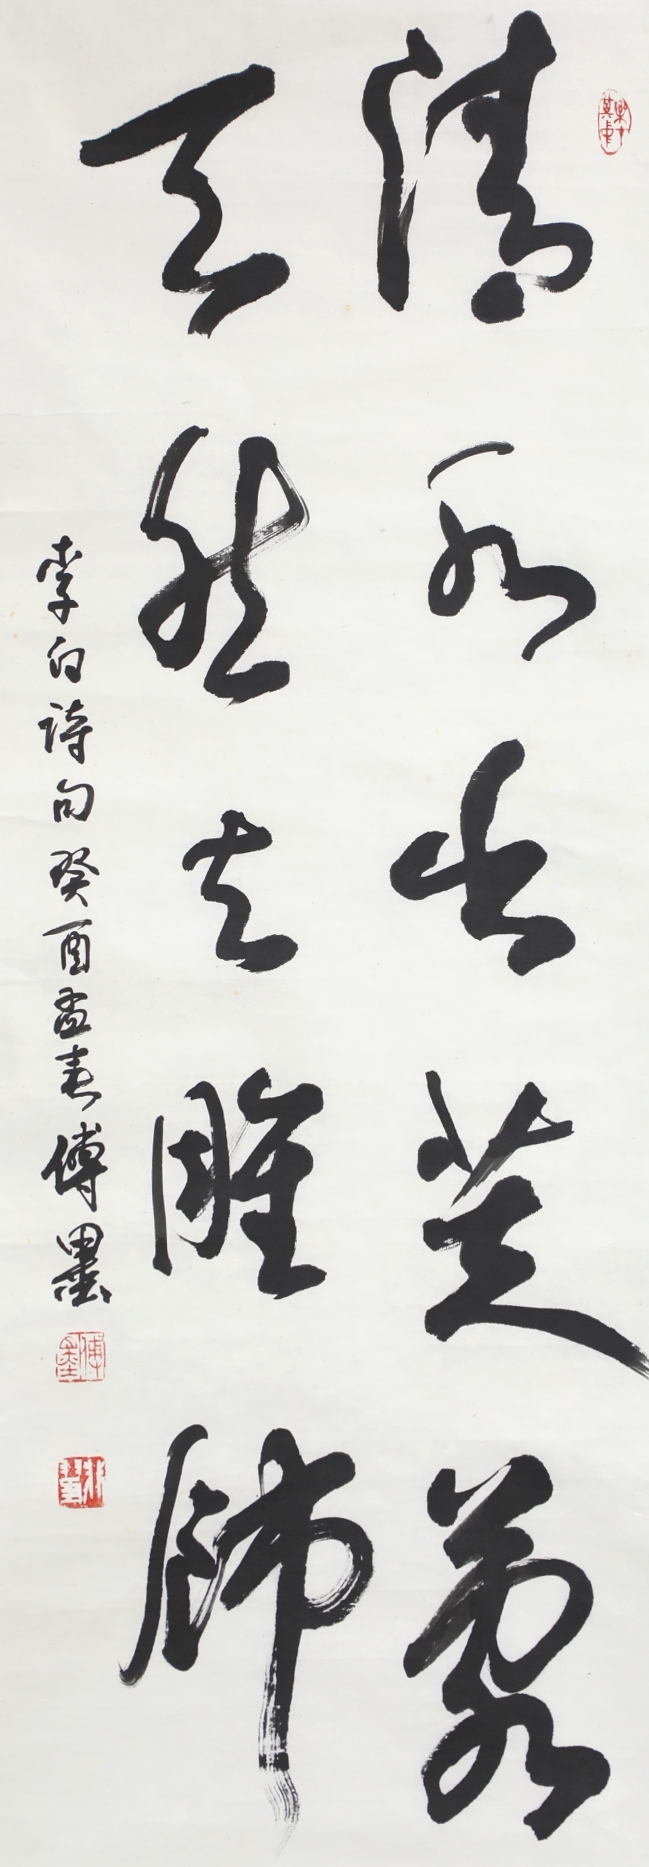 清水出芙蓉
天然去雕飾
李白詩句癸酉孟春傅墨
傅墨